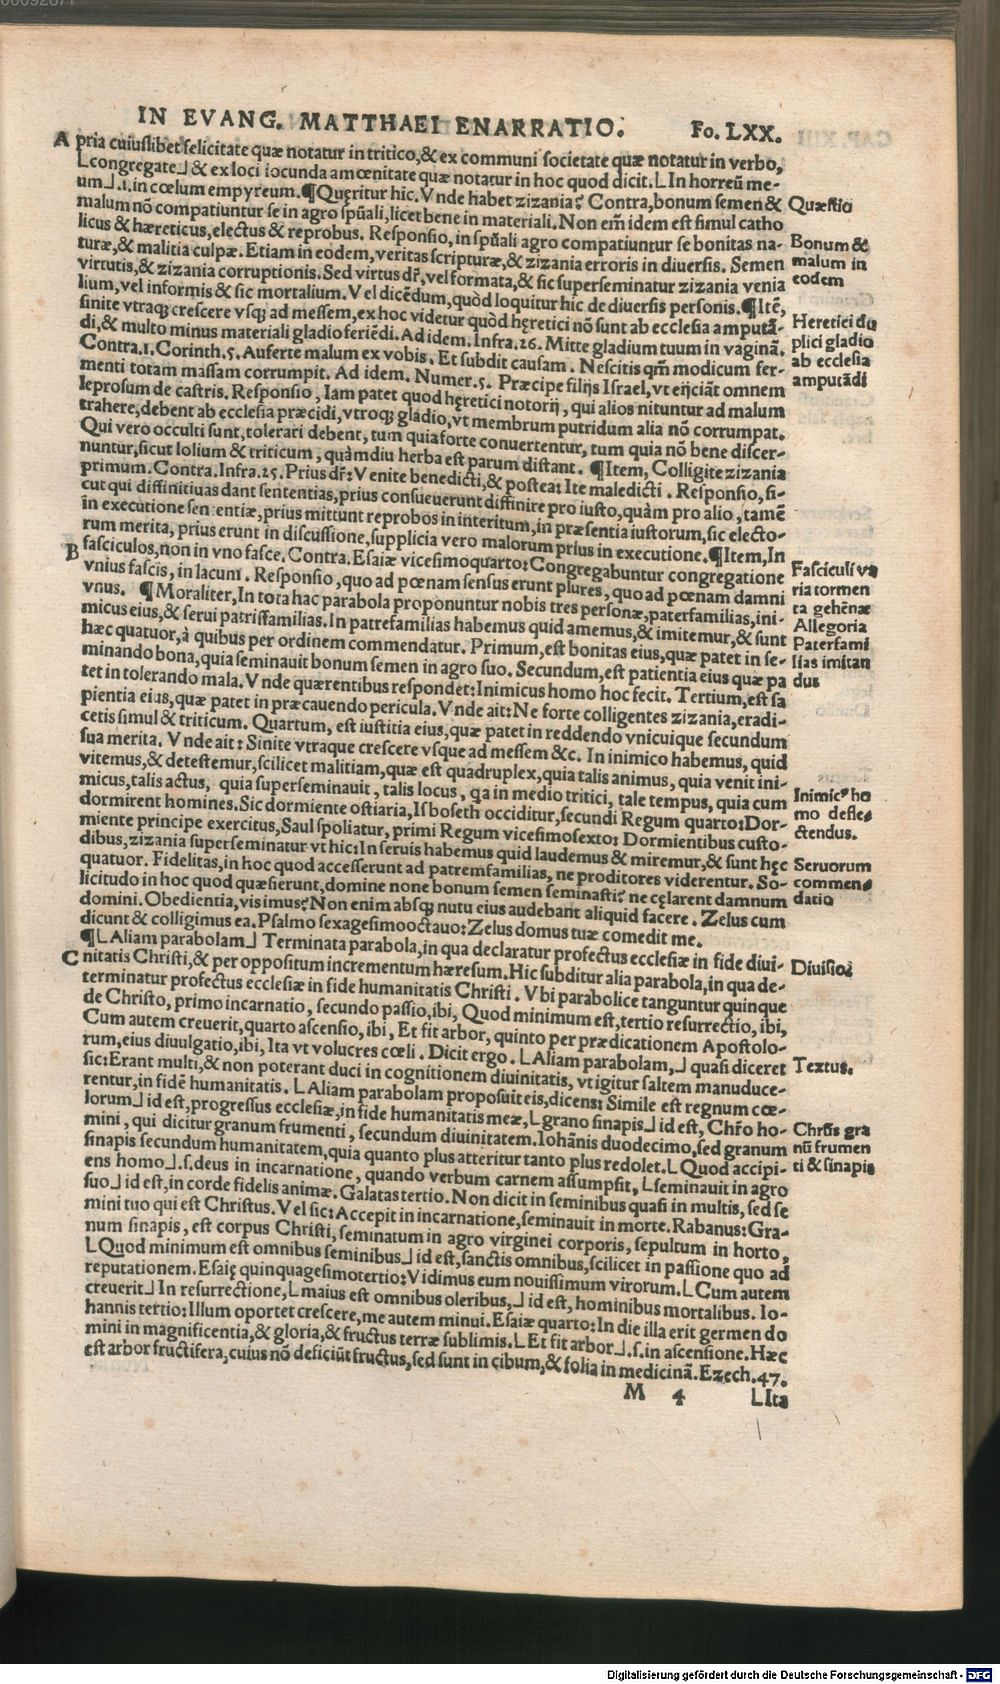 IN EVANG. MATTHAEI ENARRATIO. Fo. LXX.
A pria cuiuslibet felicitate quæ notatur in tritico, & ex communi societate quæ notatur in verbo,
⌊congregate⌋ & ex loci iocunda amœnitate quæ notatur in hoc quod dicit. ⌊In horreū me-
um⌋ .i. in cœlum empyreum. ¶ Queritur hic. Vnde habet zizania? Contra, bonum semen &
malum nō compatiuntur se in agro spūali, licet bene in materiali. Non em̄ idem est simul catho
licus & hæreticus, electus & reprobus. Responsio, in spūali agro compatiuntur se bonitas na-
turæ, & malitia culpæ. Etiam in eodem, veritas scripturæ, & zizania erroris in diuersis. Semen
virtutis, & zizania corruptionis. Sed virtus dr̄, vel formata, & sic superseminatur zizania venia
lium, vel informis & sic mortalium. Vel dicēdum, quòd loquitur hic de diuersis personis. ¶ Itē,
sinite vtraq; crescere vsq; ad messem, ex hoc videtur quòd hęretici nō sunt ab ecclesia amputā-
di, & multo minus materiali gladio feriēdi. Ad idem. Infra. 26. Mitte gladium tuum in vaginā.
Contra. 1. Corinth. 5. Auferte malum ex vobis. Et subdit causam. Nescitis qm̄ modicum fer-
menti totam massam corrumpit. Ad idem. Numer. 5. Præcipe filijs Israel, vt eijciāt omnem
leprosum de castris. Responsio, Iam patet quod hęretici notorij, qui alios nituntur ad malum
trahere, debent ab ecclesia præcidi, vtroq; gladio, vt membrum putridum alia nō corrumpat.
Qui vero occulti sunt, tolerari debent, tum quia forte conuertentur, tum quia nō bene discer-
nuntur, sicut lolium & triticum, quàmdiu herba est parum distant. ¶ Item, Colligite zizania
primum. Contra. Infra. 25. Prius dr̄: Venite benedicti, & postea: Ite maledicti. Responsio, si-
cut qui diffinitiuas dant sententias, prius consueuerunt diffinire pro iusto, quàm pro alio, tamē
in executione sententiæ, prius mittunt reprobos in interitum, in præsentia iustorum, sic electo-
rum merita, prius erunt in discussione, supplicia vero malorum prius in executione. ¶ Item, In
B fasciculos, non in vno fasce. Contra. Esaiæ vicesimoquarto: Congregabuntur congregatione
vnius fascis, in lacum. Responsio, quo ad pœnam sensus erunt plures, quo ad pœnam damni
vnus. ¶ Moraliter, In tota hac parabola proponuntur nobis tres personæ, paterfamilias, ini-
micus eius, & serui patrisfamilias. In patrefamilias habemus quid amemus, & imitemur, & sunt
hæc quatuor, à quibus per ordinem commendatur. Primum, est bonitas eius, quæ patet in se-
minando bona, quia seminauit bonum semen in agro suo. Secundum, est patientia eius quæ pa
tet in tolerando mala. Vnde quærentibus respondet: Inimicus homo hoc fecit. Tertium, est sa
pientia eius, quæ patet in præcauendo pericula. Vnde ait: Ne forte colligentes zizania, eradi-
cetis simul & triticum. Quartum, est iustitia eius, quæ patet in reddendo vnicuique secundum
sua merita. Vnde ait: Sinite vtraque crescere vsque ad messem &c. In inimico habemus, quid
vitemus, & detestemur, scilicet malitiam, quæ est quadruplex, quia talis animus, quia venit ini-
micus, talis actus, quia superseminauit, talis locus, qa in medio tritici, tale tempus, quia cum
dormirent homines. Sic dormiente ostiaria, Isboseth occiditur, secundi Regum quarto: Dor-
miente principe exercitus, Saul spoliatur, primi Regum vicesimosexto: Dormientibus custo-
dibus, zizania superseminatur vt hic: In seruis habemus quid laudemus & miremur, & sunt hęc
quatuor. Fidelitas, in hoc quod accesserunt ad patremfamilias, ne proditores viderentur. So-
licitudo in hoc quod quæsierunt, domine none bonum semen seminasti? ne cęlarent damnum
domini. Obedientia, vis imus? Non enim absq; nutu eius audebant aliquid facere. Zelus cum
dicunt & colligimus ea. Psalmo sexagesimooctauo: Zelus domus tuæ comedit me.
¶ ⌊Aliam parabolam⌋ Terminata parabola, in qua declaratur profectus ecclesiæ in fide diui-
C nitatis Christi, & per oppositum incrementum hæresum. Hic subditur alia parabola, in qua de-
terminatur profectus ecclesiæ in fide humanitatis Christi. Vbi parabolice tanguntur quinque
de Christo, primo incarnatio, secundo passio, ibi, Quod minimum est, tertio resurrectio, ibi,
Cum autem creuerit, quarto ascensio, ibi, Et fit arbor, quinto per prædicationem Apostolo-
rum, eius diuulgatio, ibi, Ita vt volucres cœli. Dicit ergo. ⌊Aliam parabolam,⌋ quasi diceret
sic: Erant multi, & non poterant duci in cognitionem diuinitatis, vt igitur saltem manuduce-
rentur, in fidē humanitatis. ⌊Aliam parabolam proposuit eis, dicens: Simile est regnum cœ-
lorum⌋ id est, progressus ecclesiæ, in fide humanitatis meæ, ⌊grano sinapis⌋ id est, Chr̄o ho-
mini, qui dicitur granum frumenti, secundum diuinitatem. Iohānis duodecimo, sed granum
sinapis secundum humanitatem, quia quanto plus atteritur tanto plus redolet. ⌊Quod accipi-
ens homo⌋ .s. deus in incarnatione, quando verbum carnem assumpsit, ⌊seminauit in agro
suo⌋ id est, in corde fidelis animæ. Galatas tertio. Non dicit in seminibus quasi in multis, sed se
mini tuo qui est Christus. Vel sic: Accepit in incarnatione, seminauit in morte. Rabanus: Gra-
num sinapis, est corpus Christi, seminatum in agro virginei corporis, sepultum in horto,
⌊Quod minimum est omnibus seminibus⌋ id est, sanctis omnibus, scilicet in passione quo ad
reputationem. Esaię quinquagesimotertio: Vidimus eum nouissimum virorum. ⌊Cum autem
creuerit⌋ In resurrectione, ⌊maius est omnibus oleribus,⌋ id est, hominibus mortalibus. Io-
hannis tertio: Illum oportet crescere, me autem minui. Esaiæ quarto: In die illa erit germen do
mini in magnificentia, & gloria, & fructus terræ sublimis. ⌊Et fit arbor⌋ .s. in ascensione. Hæc
est arbor fructifera, cuius nō deficiūt fructus, sed sunt in cibum, & folia in medicinā. Ezech. 47.
M 4 ⌊Ita
Quæstio
Bonum &
malum in
eodem
Heretici du
plici gladio
ab ecclesia
amputādi
Fasciculi va
ria tormen
ta gehēnæ
Allegoria
Paterfami
lias imitan
dus
Inimicꝰ ho
mo defle-
ctendus.
Seruorum
commen-
datio
Diuisio.
Textus.
Chrūs gra
nū frumen
ti & sinapis
Digitalisierung gefördert durch die Deutsche Forschungsgemeinschaft - DFG